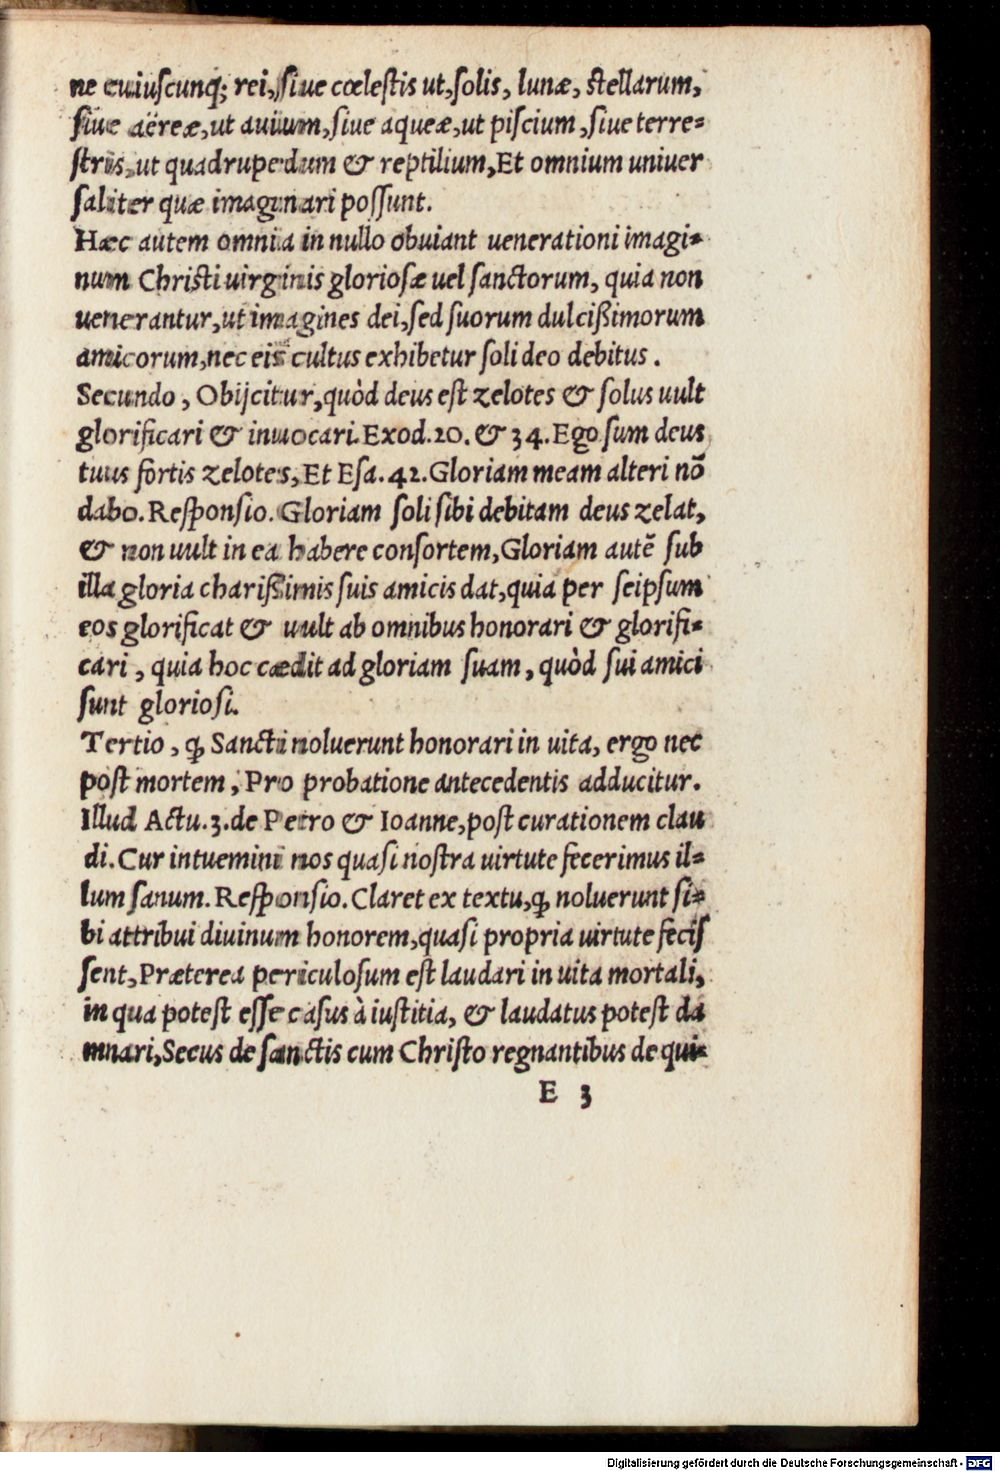 ne cuiuscunq; rei, siue cœlestis ut, solis, lunæ, stellarum,
siue aëreæ, ut auium, siue aqueæ, ut piscium, siue terre-
stris, ut quadrupedum & reptilium, Et omnium uniuer
saliter quæ imaginari possunt.
Hæc autem omnia in nullo obuiant uenerationi imagi-
num Christi uirginis gloriosæ uel sanctorum, quia non
uenerantur, ut imagines dei, sed suorum dulcißimorum
amicorum, nec eis cultus exhibetur soli deo debitus.
Secundo, Obijcitur, quòd deus est zelotes & solus uult
glorificari & inuocari. Exod. 20. & 34. Ego sum deus
tuus fortis zelotes, Et Esa. 42. Gloriam meam alteri nõ
dabo. Responsio. Gloriam soli sibi debitam deus zelat,
& non uult in ea habere consortem, Gloriam autẽ sub
illa gloria charißimis suis amicis dat, quia per seipsum
eos glorificat & uult ab omnibus honorari & glorifi-
cari, quia hoc cædit ad gloriam suam, quòd sui amici
sunt gloriosi.
Tertio, ꝙ Sancti noluerunt honorari in uita, ergo nec
post mortem, Pro probatione antecedentis adducitur.
Illud Actu. 3. de Petro & Ioanne, post curationem clau
di. Cur intuemini nos quasi nostra uirtute fecerimus il-
lum sanum. Responsio. Claret ex textu, ꝙ noluerunt si-
bi attribui diuinum honorem, quasi propria uirtute fecis
sent, Præterea periculosum est laudari in uita mortali,
in qua potest esse casus à iustitia, & laudatus potest da
mnari, Secus de sanctis cum Christo regnantibus de qui-
E 3
Digitalisierung gefördert durch die Deutsche Forschungsgemeinschaft - DFG